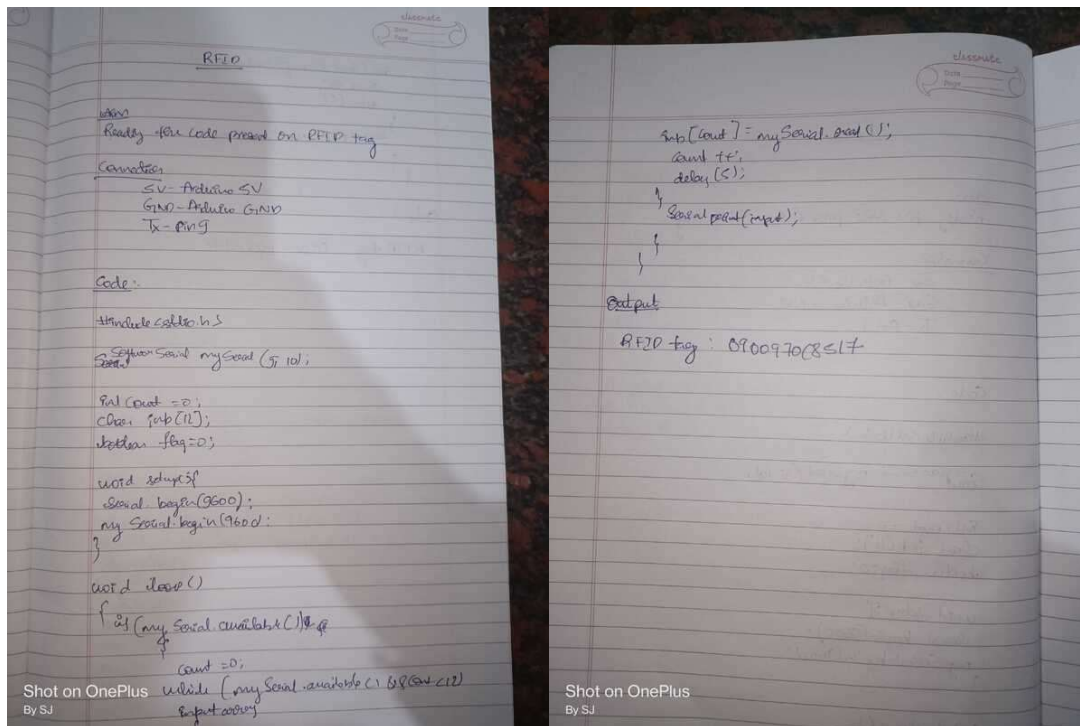 classmate
Date
Page
RFID
Aim
Reading the code present on RFID tag
Connection
5V - Arduino 5V
GND - Arduino GND
Tx - Pin 9
Code :-
#include <stdio.h>
Software Serial my Serial (9, 10);
int Count = 0;
char inp [12];
boolean flag = 0;
void setup() {
Serial. begin (9600);
my Serial. begin (9600):
}
void loop ()
{ if (my Serial. available ()
{
count = 0;
while ( my Serial. available () && Count < 12)
Input array
Shot on OnePlus
By SJ
classmate
Date
Page
inp [Count] = my Serial. read ();
count ++;
delay (5);
}
Serial print (input);
}
}
Output
RFID tag :
Shot on OnePlus
By SJ